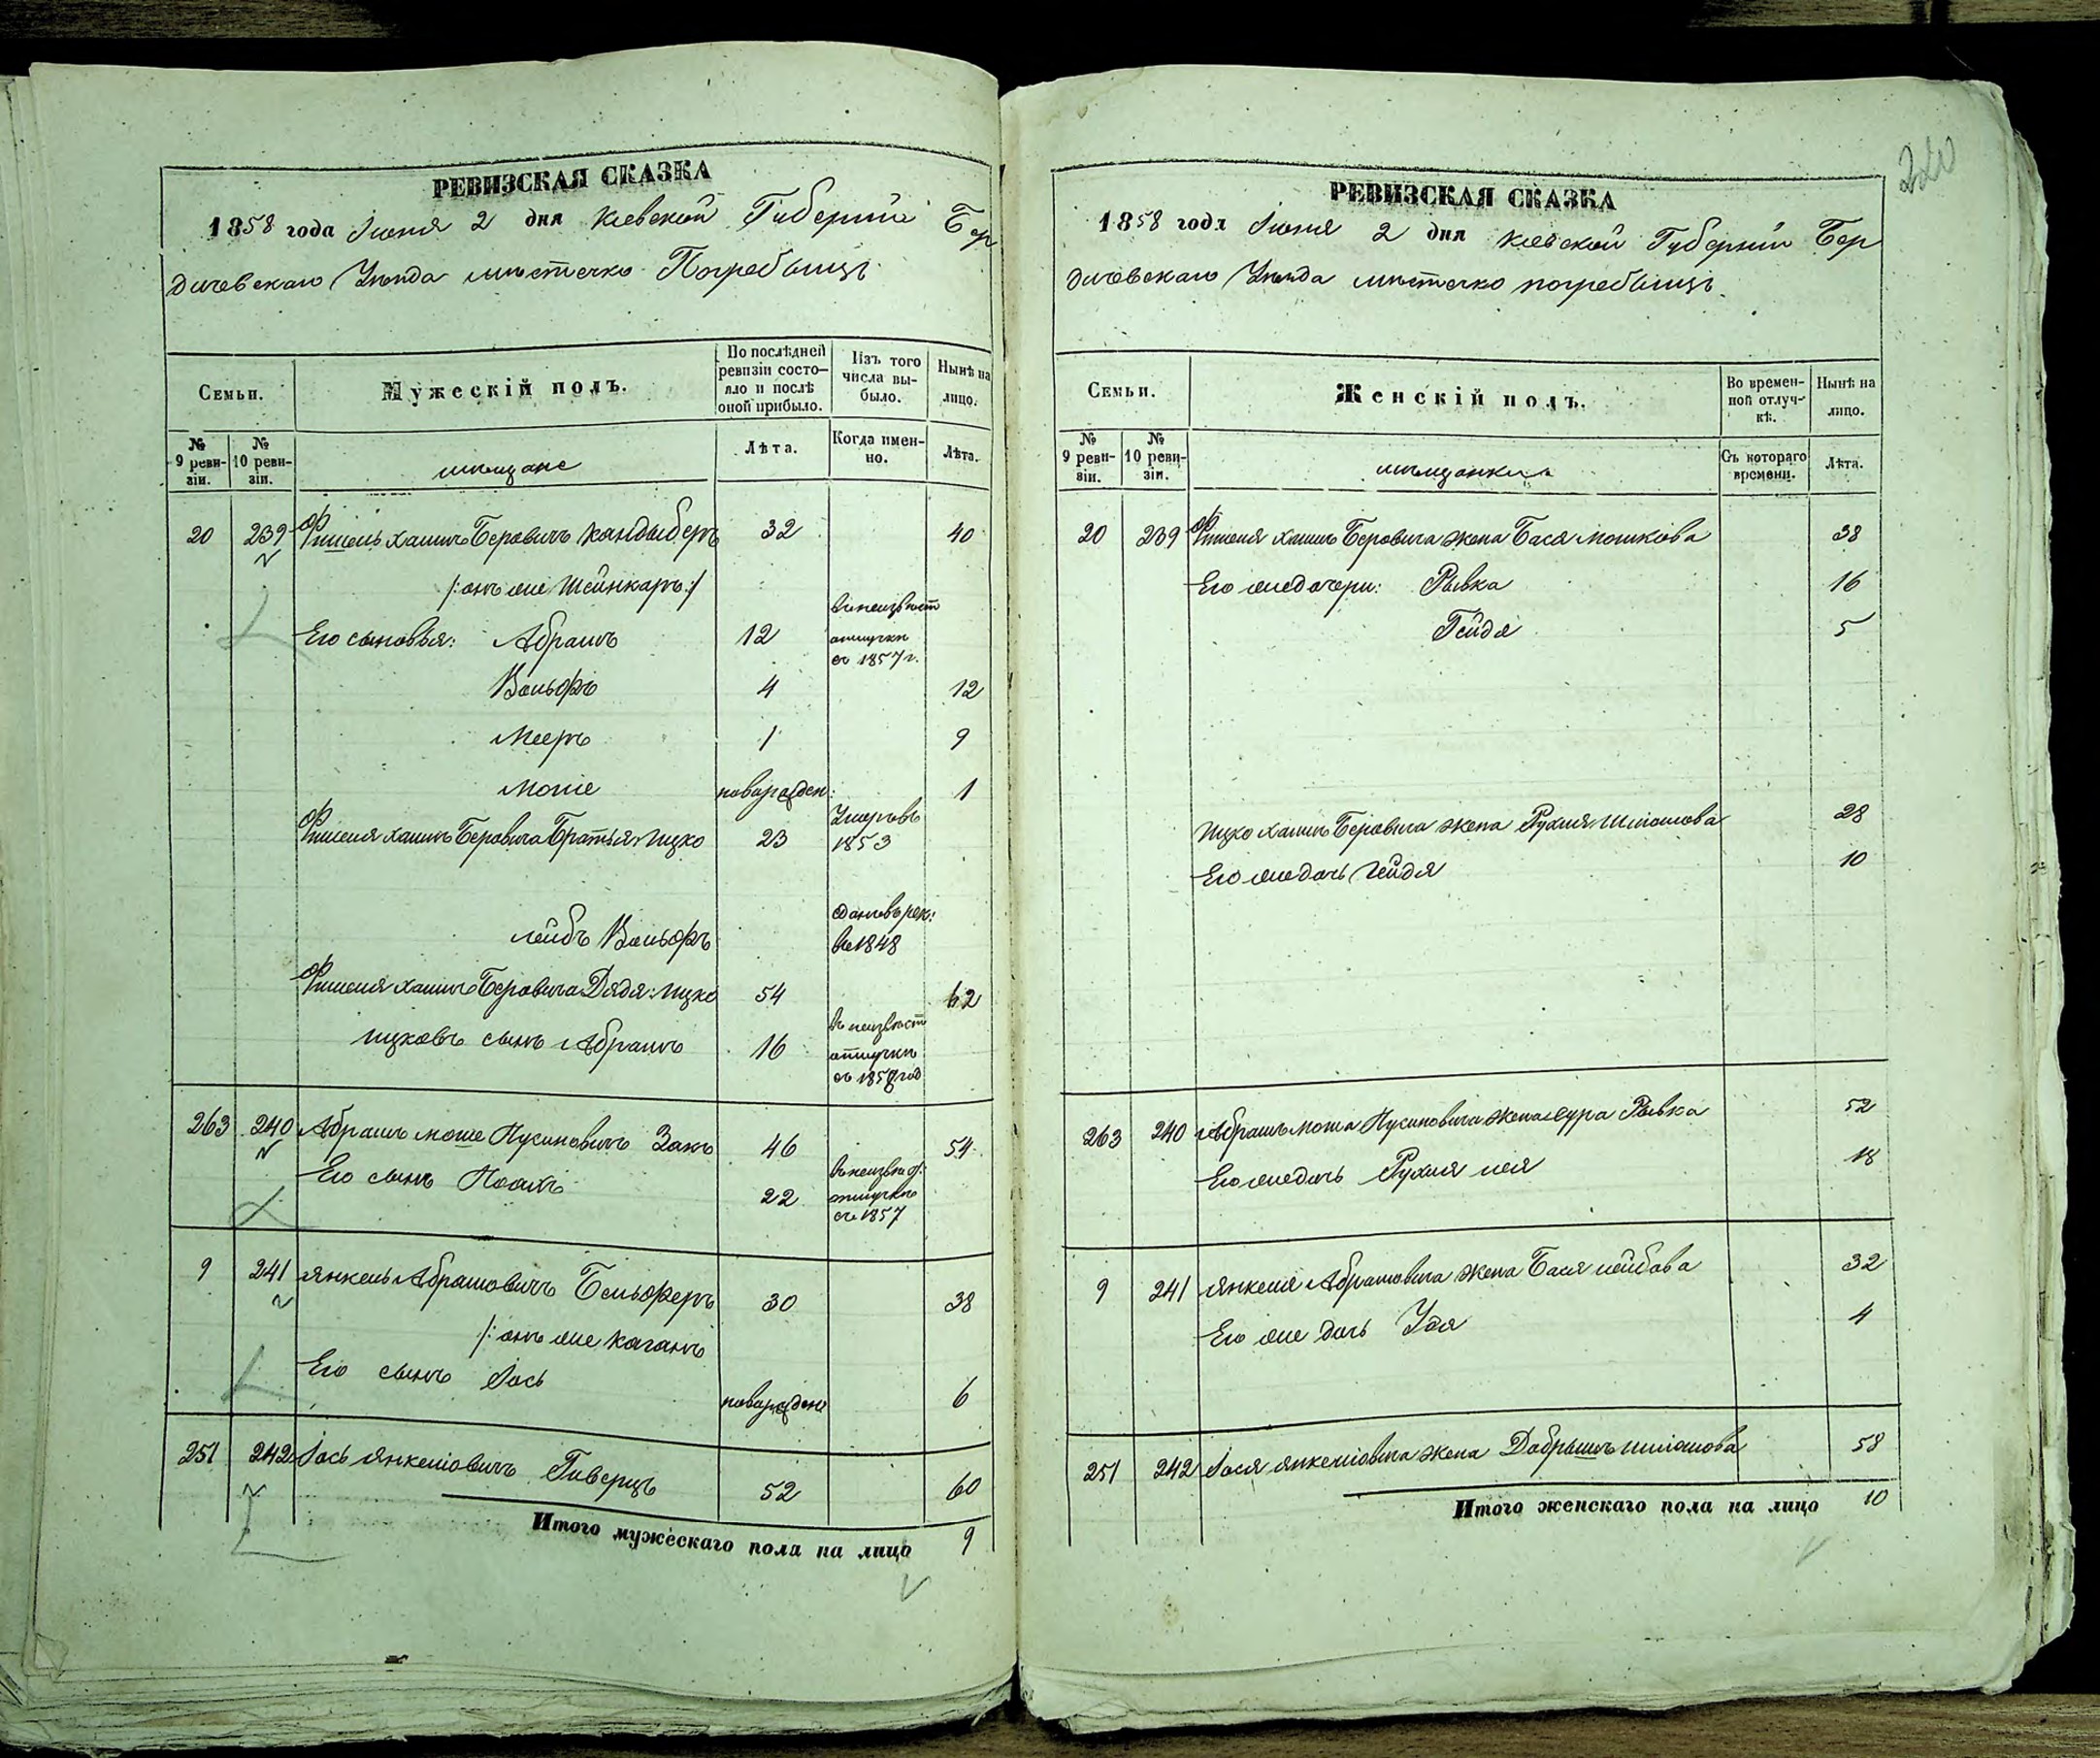 РЕВИЗСКАЯ СКАЗКА
1858 года Іюня 2 дня Кіевской Губерніи Бер
дичевскаго Уѣзда мѣстечко Погребищъ
Семьи.
Мужескій полъ.
По послѣдней ревизіи состояло и послѣ оной прибыло.
Изъ того числа выбыло.
Нынѣ на лицо.
№ 9 ревизіи.
№ 10 ревизіи.
мѣщане
Лѣта.
Когда именно.
Лѣта.
20 239 Фишель Хаимъ Беровичъ Кандыберъ 32 40
/:онъ же Шейнкаръ:/
Его сыновья: Абрамъ 12 въ неизвѣст отлучкѣ съ 1857 г.
Вольфъ 4 12
Мееръ 1 9
Моше новорожден: 1
Фишеля Хаимъ Беровича Братья: Ицко 23 Умеръ въ 1853
Лейбъ Вольфъ Сданъ въ рек: въ 1848
Фишеля Хаимъ Беровича Дядя: Ицко 54 62
Ицковъ сынъ Абрамъ 16 въ неизвѣст отлучкѣ съ год
263 240 Абрамъ Моше Нусиновичъ Закъ 46 54
Его сынъ 22 въ неизвѣс: отлучкѣ съ 1857
9 241 Янкель Абрамовичъ Бельферъ 30 38
/:онъ же Каганъ
Его сынъ Іось новорожден 6
251 242 Іось Янкеліовичъ Гиверцъ 52 60
Итого мужескаго пола на лицо 9
220
РЕВИЗСКАЯ СКАЗКА
1858 года Іюня 2 дня Кіевской Губерніи Бер
дичевскаго Уѣзда мѣстечко Погребищъ
Семьи.
Женскій полъ.
Во временной отлучкѣ.
Нынѣ на лицо.
№ 9 ревизіи.
№ 10 ревизіи.
мѣщанки
Съ котораго времени.
Лѣта.
20 239 Фишеля Хаимъ Беровича жена Бася Мошкова 38
Его же дочери: Рывка 16
Гейдя 5
Ицко Хаимъ Беровича жена Рухля Шліомова 28
Его же дочь Гейдя 10
263 240 Абрамъ Моша Нусиновича жена Сура Рывка 52
Его же дочь Рухля Лея 18
9 241 Янкеля Абрамовича жена Бася Лейбова 32
Его же дочь Удя 4
251 242 Іося Янкеліовича жена Добрышъ Шліомова 58
Итого женскаго пола на лицо 10